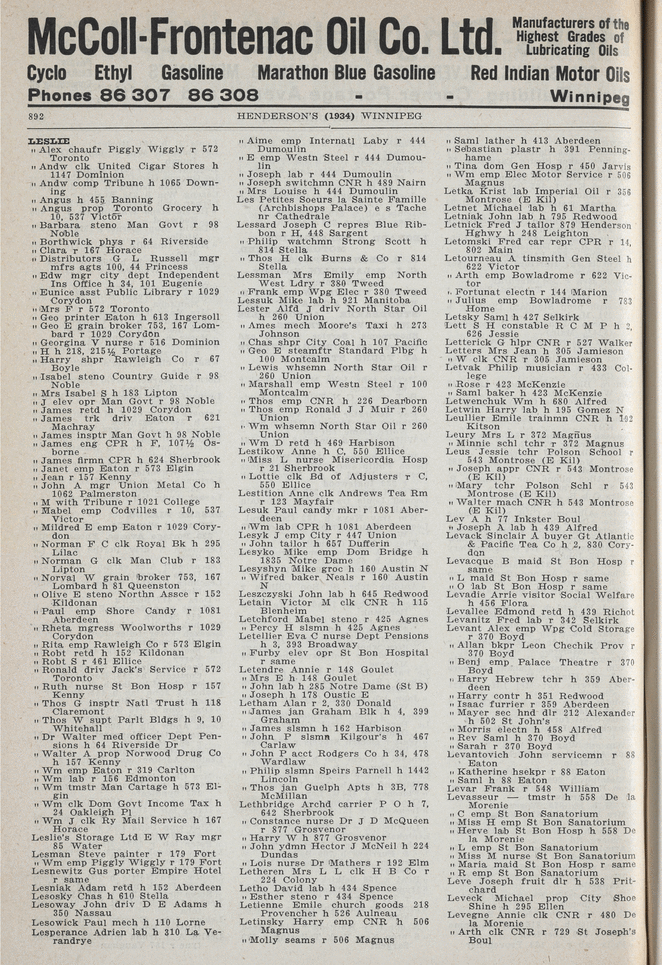 McColl-Frontenac Oil Co. Ltd.
Manufacturers of the
Highest Grades of
Lubricating Oils
Cyclo Ethyl Gasoline Marathon Blue Gasoline Red Indian Motor Oils
Phones 86 307 86 308 - - Winnipeg
892 HENDERSON'S (1934) WINNIPEG
LESLIE
" Alex chaufr Piggly Wiggly r 572
Toronto
" Andw clk United Cigar Stores h
1147 Dominion
" Andw comp Tribune h 1065 Down-
ing
" Angus h 455 Banning
" Angus prop Toronto Grocery h
10, 537 Victor
" Barbara steno Man Govt r 98
Noble
" Borthwick phys r 64 Riverside
" Clara r 167 Horace
" Distributors G L Russell mgr
mfrs agts 100, 44 Princess
" Edw mgr city dept Independent
Ins Office h 34, 101 Eugenie
" Eunice asst Public Library r 1029
Corydon
" Mrs F r 572 Toronto
" Geo printer Eaton h 613 Ingersoll
" Geo E grain broker 753, 167 Lom-
bard r 1029 Corydon
" Georgina V nurse r 516 Dominion
" H h 218, 215½ Portage
" Harry shpr Rawleigh Co r 67
Boyle
" Isabel steno Country Guide r 98
Noble
" Mrs Isabel S h 183 Lipton
" J elev opr Man Govt r 98 Noble
" James retd h 1029 Corydon
" James trk driv Eaton r 621
Machray
" James insptr Man Govt h 98 Noble
" James eng CPR h F, 107½ Os-
borne
" James firmn CPR h 624 Sherbrook
" Janet emp Eaton r 573 Elgin
" Jean r 157 Kenny
" John A mgr Union Metal Co h
1062 Palmerston
" M with Tribune r 1021 College
" Mabel emp Codvilles r 10, 537
Victor
" Mildred E emp Eaton r 1029 Cory-
don
" Norman F C clk Royal Bk h 295
Lilac
" Norman G clk Man Club r 183
Lipton
" Norval W grain broker 753, 167
Lombard h 81 Queenston
" Olive E steno Northn Assce r 152
Kildonan
" Paul emp Shore Candy r 1081
Aberdeen
" Rheta mgress Woolworths r 1029
Corydon
" Rita emp Rawleigh Co r 573 Elgin
" Robt retd h 152 Kildonan
" Robt S r 461 Ellice
" Ronald driv Jack's Service r 572
Toronto
" Ruth nurse St Bon Hosp r 157
Kenny
" Thos G insptr Natl Trust h 118
Claremont
" Thos W supt Parlt Bldgs h 9, 10
Whitehall
" Dr Walter med officer Dept Pen-
sions h 64 Riverside Dr
" Walter A prop Norwood Drug Co
h 157 Kenny
" Wm emp Eaton r 319 Carlton
" Wm lab r 156 Edmonton
" Wm tmstr Man Cartage h 573 El-
gin
" Wm clk Dom Govt Income Tax h
24 Oakleigh Pl
" Wm J clk Ry Mail Service h 167
Horace
Leslie's Storage Ltd E W Ray mgr
85 Water
Lesman Steve painter r 179 Fort
" Wm emp Piggly Wiggly r 179 Fort
Lesnewitz Gus porter Empire Hotel
r same
Lesniak Adam retd h 152 Aberdeen
Lesosky Chas h 610 Stella
Lesoway John driv D E Adams h
350 Nassau
Lesowick Paul mech h 110 Lorne
Lesperance Adrien lab h 310 La Ve-
randrye
" Aime emp Internatl Laby r 444
Dumoulin
" E emp Westn Steel r 444 Dumou-
lin
" Joseph lab r 444 Dumoulin
" Joseph switchmn CNR h 489 Nairn
" Mrs Louise h 444 Dumoulin
Les Petites Soeurs la Sainte Famille
(Archishops Palace) e s Tache
nr Cathedrale
Lessard Joseph C repres Blue Rib-
bon r H, 448 Sargent
" Philip watchmn Strong Scott h
814 Stella
" Thos H clk Burns & Co r 814
Stella
Lessman Mrs Emily emp North
West Ldry r 380 Tweed
" Frank emp Wpg Elec r 380 Tweed
Lessuk Mike lab h 921 Manitoba
Lester Alfd J driv North Star Oil
h 260 Union
" Ames mech Moore's Taxi h 273
Johnson
" Chas shpr City Coal h 107 Pacific
" Geo E steamftr Standard Plbg h
100 Montcalm
" Lewis whsemn North Star Oil r
260 Union
" Marshall emp Westn Steel r 100
Montcalm
" Thos emp CNR h 226 Dearborn
" Thos emp Ronald J J Muir r 260
Union
" Wm whsemn North Star Oil r 260
Union
" Wm D retd h 469 Harbison
Lestikow Anne h C, 550 Ellice
" Miss L nurse Misericordia Hosp
r 21 Sherbrook
" Lottie clk Bd of Adjusters r C,
550 Ellice
Lestition Anne clk Andrews Tea Rm
r 123 Mayfair
Lesuk Paul candy mkr r 1081 Aber-
deen
" Wm lab CPR h 1081 Aberdeen
Lesyk J emp City r 447 Union
" John tailor h 657 Dufferin
Lesyko Mike emp Dom Bridge h
1835 Notre Dame
Lesyshyn Mike groc h 160 Austin N
" Wilfred baker Neals r 160 Austin
N
Leszczyski John lab h 645 Redwood
Letain Victor M clk CNR h 115
Blenheim
Letchford Mabel steno r 425 Agnes
" Percy H slsmn h 425 Agnes
Letellier Eva C nurse Dept Pensions
h 3, 393 Broadway
" Furby elev opr St Bon Hospital
r same
Letendre Annie r 148 Goulet
" Mrs E h 148 Goulet
" John lab h 285 Notre Dame (St B)
" Joseph h 178 Oustic E
Letham Alan r 2, 330 Donald
" James jan Graham Blk h 4, 399
Graham
" James slsmn h 162 Harbison
" John P slsmn Kilgour's h 467
Carlaw
" John P acct Rodgers Co h 34, 478
Wardlaw
" Philip slsmn Speirs Parnell h 1442
Lincoln
" Thos jan Guelph Apts h 3B, 778
McMillan
Lethbridge Archd carrier P O h 7,
642 Sherbrook
" Constance nurse Dr J D McQueen
r 877 Grosvenor
" Harry W h 877 Grosvenor
" John ydmn Hector J McNeil h 224
Dundas
" Lois nurse Dr Mathers r 192 Elm
Letheren Mrs L L clk H B Co r
224 Colony
Letho David lab h 434 Spence
" Esther steno r 434 Spence
Letienne Emile church goods 218
Provencher h 526 Aulneau
Letinsky Harry emp CNR h 506
Magnus
" Molly seams r 506 Magnus
" Saml lather h 413 Aberdeen
" Sebastian plastr h 391 Penning-
hame
" Tina dom Gen Hosp r 450 Jarvis
" Wm emp Elec Motor Service r 506
Magnus
Letka Krist lab Imperial Oil r 356
Montrose (E Kil)
Letnet Michael lab h 61 Martha
Letniak John lab h 795 Redwood
Letnick Fred J tailor 879 Henderson
Highwy h 248 Leighton
Letomski Fred car repr CPR r 14,
802 Main
Letourneau A tinsmith Gen Steel h
622 Victor
" Arth emp Bowladrome r 622 Vic-
tor
" Fortunat electn r 144 Marion
" Julius emp Bowladrome r 783
Home
Letsky Saml h 427 Selkirk
Lett S H constable R C M P h 2,
626 Jessie
Letterick G hlpr CNR r 527 Walker
Letters Mrs Jean h 305 Jamieson
" W clk CNR r 305 Jamieson
Letvak Philip musician r 433 Col-
lege
" Rose r 423 McKenzie
" Saml baker h 423 McKenzie
Letwenchuk Wm h 680 Alfred
Letwin Harry lab h 195 Gomez N
Leullier Emile trainmn CNR h 102
Kitson
Leury Mrs L r 372 Magnus
" Minnie schl tchr r 372 Magnus
Leus Jessie tchr Polson School r
543 Montrose (E Kil)
" Joseph appr CNR r 543 Montrose
(E Kil)
" Mary tchr Polson Schl r 543
Montrose (E Kil)
" Walter mach CNR h 543 Montrose
(E Kil)
Lev A h 77 Inkster Boul
" Joseph A lab h 439 Alfred
Levack Sinclair A buyer Gt Atlantic
& Pacific Tea Co h 2, 830 Cory-
don
Levacque B maid St Bon Hosp r
same
" L maid St Bon Hosp r same
" O lab St Bon Hosp r same
Levadie Arrie visitor Social Welfare
h 456 Flora
Levallee Edmond retd h 439 Richot
Levanitz Fred lab r 342 Selkirk
Levant Alex emp Wpg Cold Storage
r 370 Boyd
" Allan bkpr Leon Chechik Prov r
370 Boyd
" Benj emp Palace Theatre r 370
Boyd
" Harry Hebrew tchr h 359 Aber-
deen
" Harry contr h 351 Redwood
" Isaac furrier r 359 Aberdeen
" Mayer sec hnd dlr 212 Alexander
h 502 St John's
" Morris electn h 458 Alfred
" Rev Saml h 370 Boyd
" Sarah r 370 Boyd
Levantovich John servicemn r 88
Eaton
" Katherine hsekpr r 88 Eaton
" Saml h 88 Eaton
Levar Frank r 548 William
Levasseur — tmstr h 558 De la
Morenie
" C emp St Bon Sanatorium
" Miss H emp St Bon Sanatorium
" Herve lab St Bon Hosp h 558 De
la Morenie
" L emp St Bon Sanatorium
" Miss M nurse St Bon Sanatorium
" Maria maid St Bon Hosp r same
" R emp St Bon Sanatorium
Leve Joseph fruit dlr h 538 Prit-
chard
Leveck Michael prop City Shoe
Shine h 295 Ellen
Levegne Annie clk CNR r 480 De
la Morenie
" Arth clk CNR r 729 St Joseph's
Boul